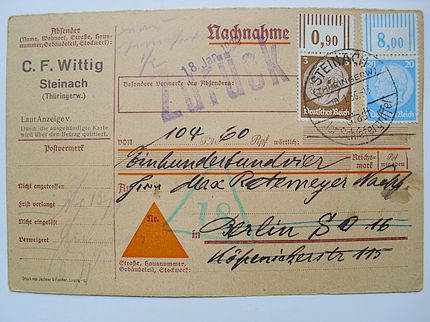 Absender
(Name, Wohnort, Straße, Haus-
nummer, Gebäudeteil, Stockwerk):
Nachnahme
C. F. Wittig
Steinach
(Thüringerw.)
Lautanzeige v.
Durch die ausgehändigte Karte
wird über den Betrag quittiert.
Postvermerk
Nicht angetroffen
Frist verlangt
Nicht eingelöst
Verweigert
18. Jan.
Besondere Vermerke des Absenders:
Zurück
0,90
8,00
3
Deutsches Reich
20
Deutsches Reich
STEINACH
(THÜRINGERW.)
von 104 60 Pf wörtlich:
Einhundertundvier
Reichs-
mark
Pf
An
Firma Max Retemeyer Nachf
Nr.
18
in
Berlin SO 16
Köpenickerstr 115
Straße, Hausnummer,
Gebäudeteil, Stockwerk: